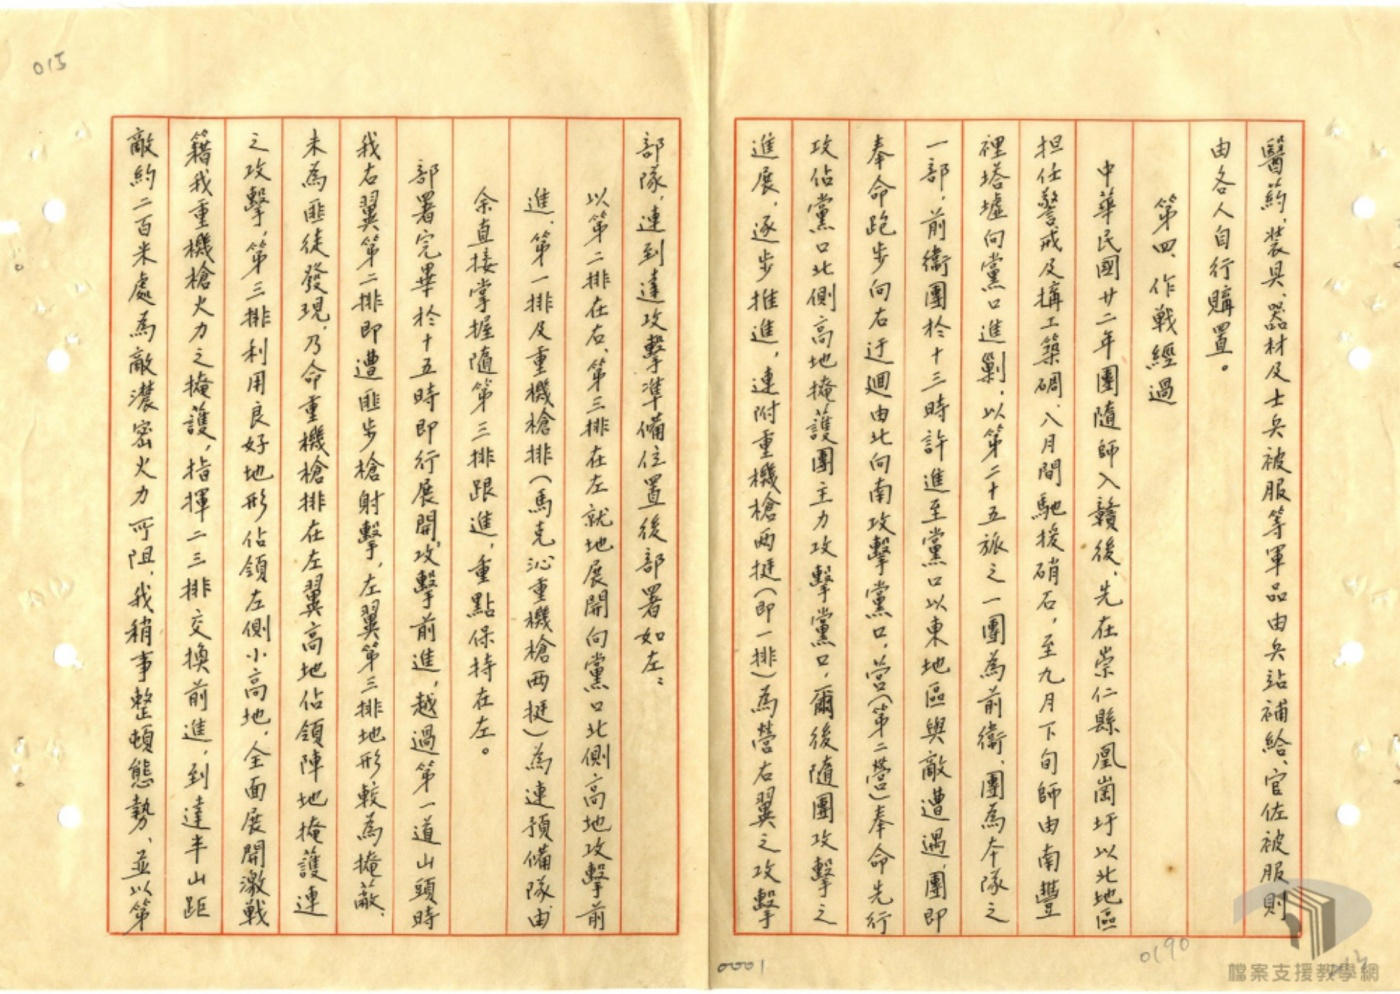 醫葯、裝具、器材及士兵被服等軍品由兵站補給、官佐被服則
由各人自行購置。
第四、作戰經過
中華民國廿二年團隨師入贛後、先在崇仁縣鳳崗圩以北地區
担任警戒及構工築碉、八月間馳援硝石，至九月下旬師由南豐
裡塔墟向黨口進剿，以第二十五旅之一團為前衛、團為本隊之
一部，前衛團於十三時許進至黨口以東地區與敵遭遇，團即
奉命跑步向右迂迴由北向南攻擊黨口，營（第二營）奉命先行
攻佔黨口北側高地掩護團主力攻擊黨口，爾後隨團攻擊之
進展，逐步推進，連附重機槍兩挺（即一排）為營右翼之攻擊
部隊，連到達攻擊準備位置後部署如左：
以第二排在右、第三排在左就地展開向黨口北側高地攻擊前
進，第一排及重機槍排（馬克沁重機槍兩挺）為連預備隊由
余直接掌握隨第三排跟進，重點保持在左。
部署完畢於十五時即行展開攻擊前進，越過第一道山頭時
我右翼第二排即遭匪步槍射擊，左翼第三排地形較為掩蔽、
未為匪徒發現，乃命重機槍排在左翼高地佔領陣地掩護連
之攻擊，第三排利用良好地形佔領左側小高地，全面展開激戰
籍我重機槍火力之掩護，指揮二三排交換前進，到達半山距
敵約二百米處為敵濃密火力所阻，我稍事整頓態勢、並以第
015
0001
0190
檔案支援教學網